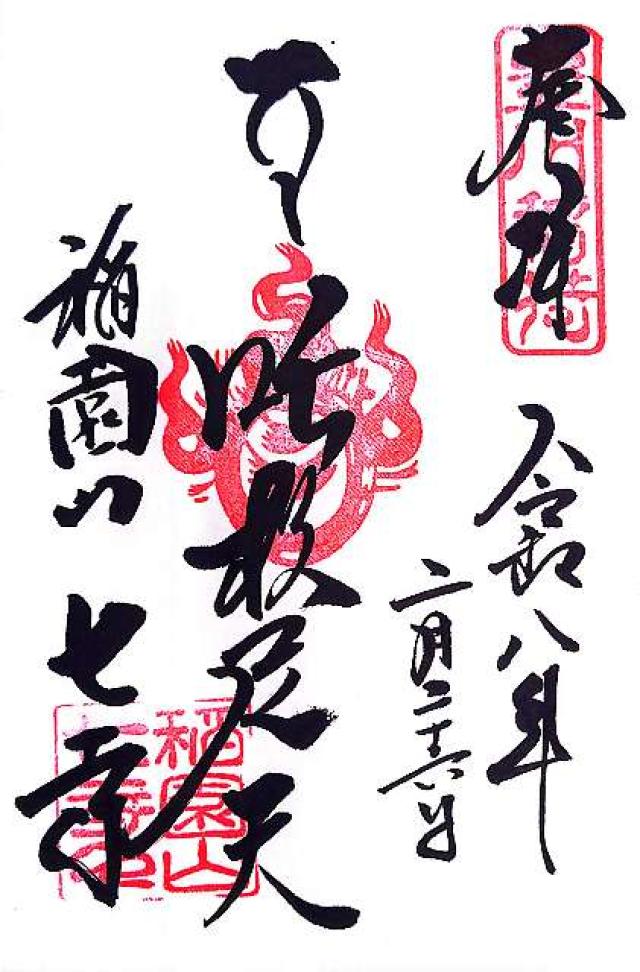 奉拝
豊川稲荷
令和八年
二月二十六日
吒枳尼天
稲園山
七寺
稲園山